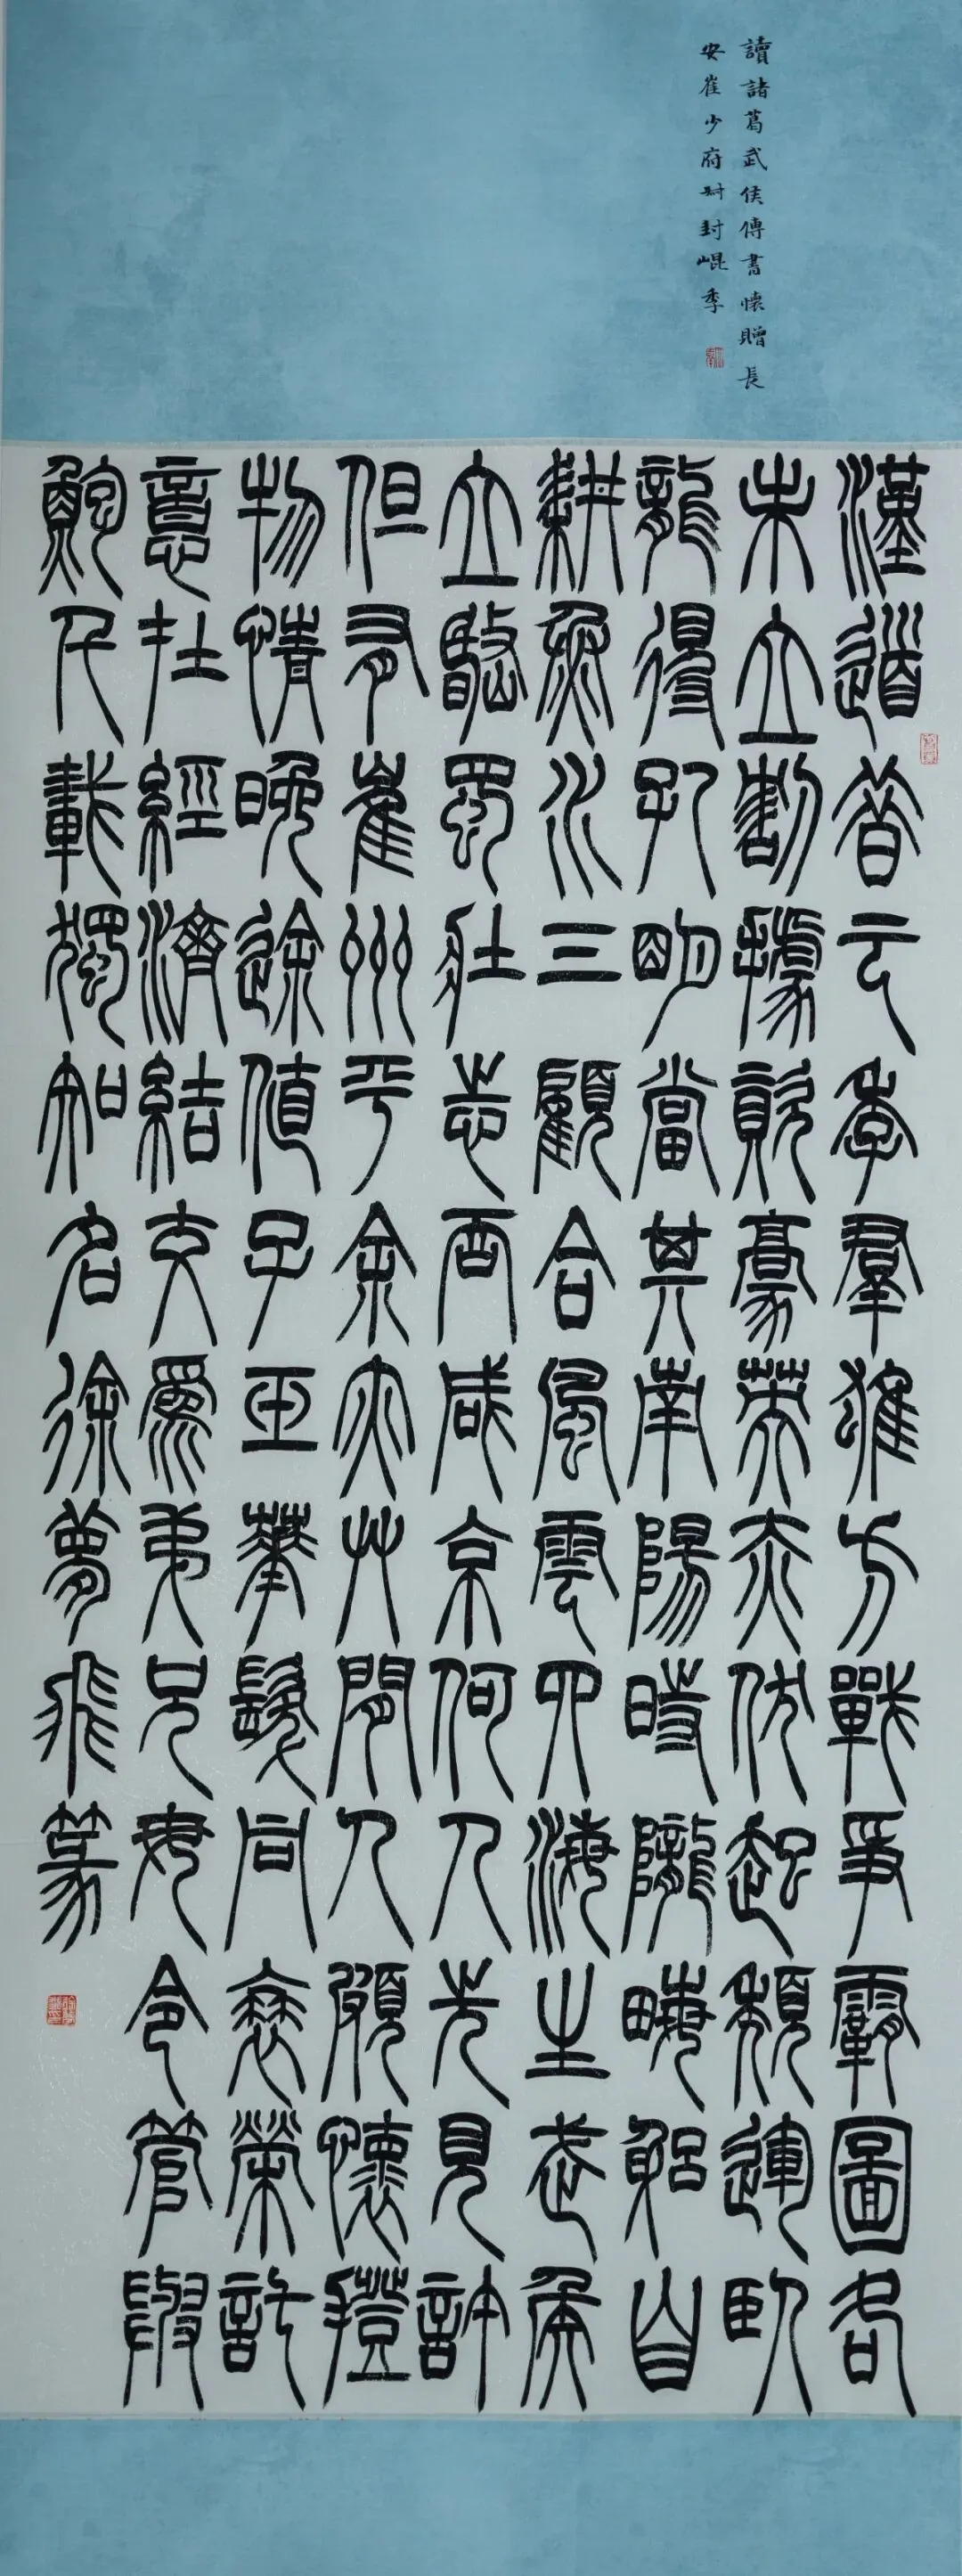 讀諸葛武侯傳書懷贈長
安崔少府叔封崐季
漢道昔云季羣雄方戰爭霸圖各
未立割據資豪英赤伏起頹運臥
龍得孔明當其南陽時隴畮躬自
耕魚水三顧合風雲四海生武侯
立岷蜀壯志吞咸京何人先見許
但有崔州平余亦艸間人頗懷拯
物情晚途值子玉華髮同衰榮託
意在經濟結交爲弟兄毋令管與
鮑千載獨知名徐夢飛篆